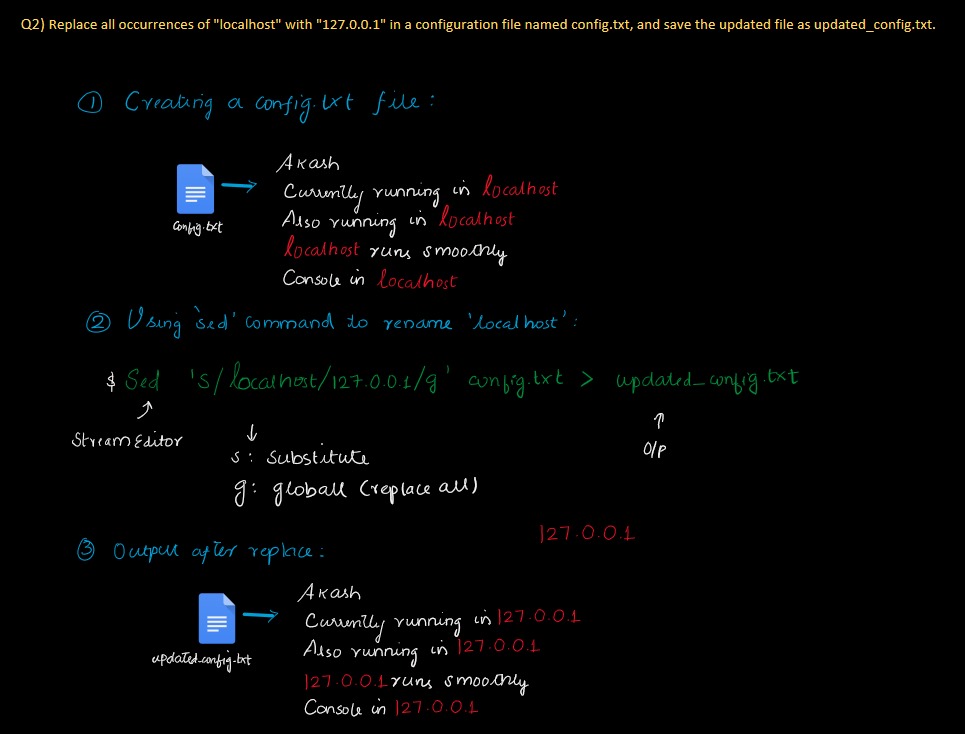 Q2) Replace all occurrences of "localhost" with "127.0.0.1" in a configuration file named config.txt, and save the updated file as updated_config.txt.
① Creating a config.txt file :
Akash
Currently running in localhost
config.txt
Also running in localhost
localhost runs smoothly
Console in localhost
② Using 'sed' command to rename 'localhost' :
$ Sed 's/localhost/127.0.0.1/g' config.txt > updated_config.txt
Stream Editor
O/P
s : Substitute
g : globall (replace all)
127.0.0.1
③ Output after replace :
Akash
Currently running in 127.0.0.1
Also running in 127.0.0.1
updated_config.txt
127.0.0.1 runs smoothly
Console in 127.0.0.1